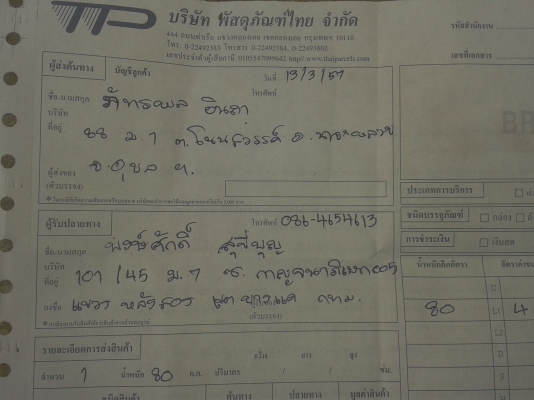 บริษัท พัสดุภัณฑ์ไทย จำกัด
รหัสสำนักงาน
เลขที่เอกสาร
ผู้ส่งต้นทาง บัญชีลูกค้า วันที่ 13/3/57
ชื่อ-นามสกุล ภัทรพล อินตา โทรศัพท์
บริษัท
ที่อยู่ 88 ม.7 ต.โนนสวรรค์ อ.นาจะหลวย
จ.อุบล ฯ.
ผู้ส่งของ
(ตัวบรรจง)
ผู้รับปลายทาง โทรศัพท์ 086-4654613
ชื่อ-นามสกุล พงษ์ศักดิ์
บริษัท
ที่อยู่ 101/45 ม.7 ซ. กาญจนาภิเษก005
แขวง หลักสอง เขต บางแค กทม.
(ตัวบรรจง)
ประเภทการบริการ
ชนิดบรรจุภัณฑ์ กล่อง
การชำระเงิน เงินสด
น้ำหนักคิดอัตรา
80 4
รายละเอียดการส่งสินค้า กว้าง ยาว สูง
จำนวน 1 น้ำหนัก 80 ก.ก. ปริมาตร / / ซม.
ชนิดสินค้า ต้นทาง ปลายทาง มูลค่าสินค้า